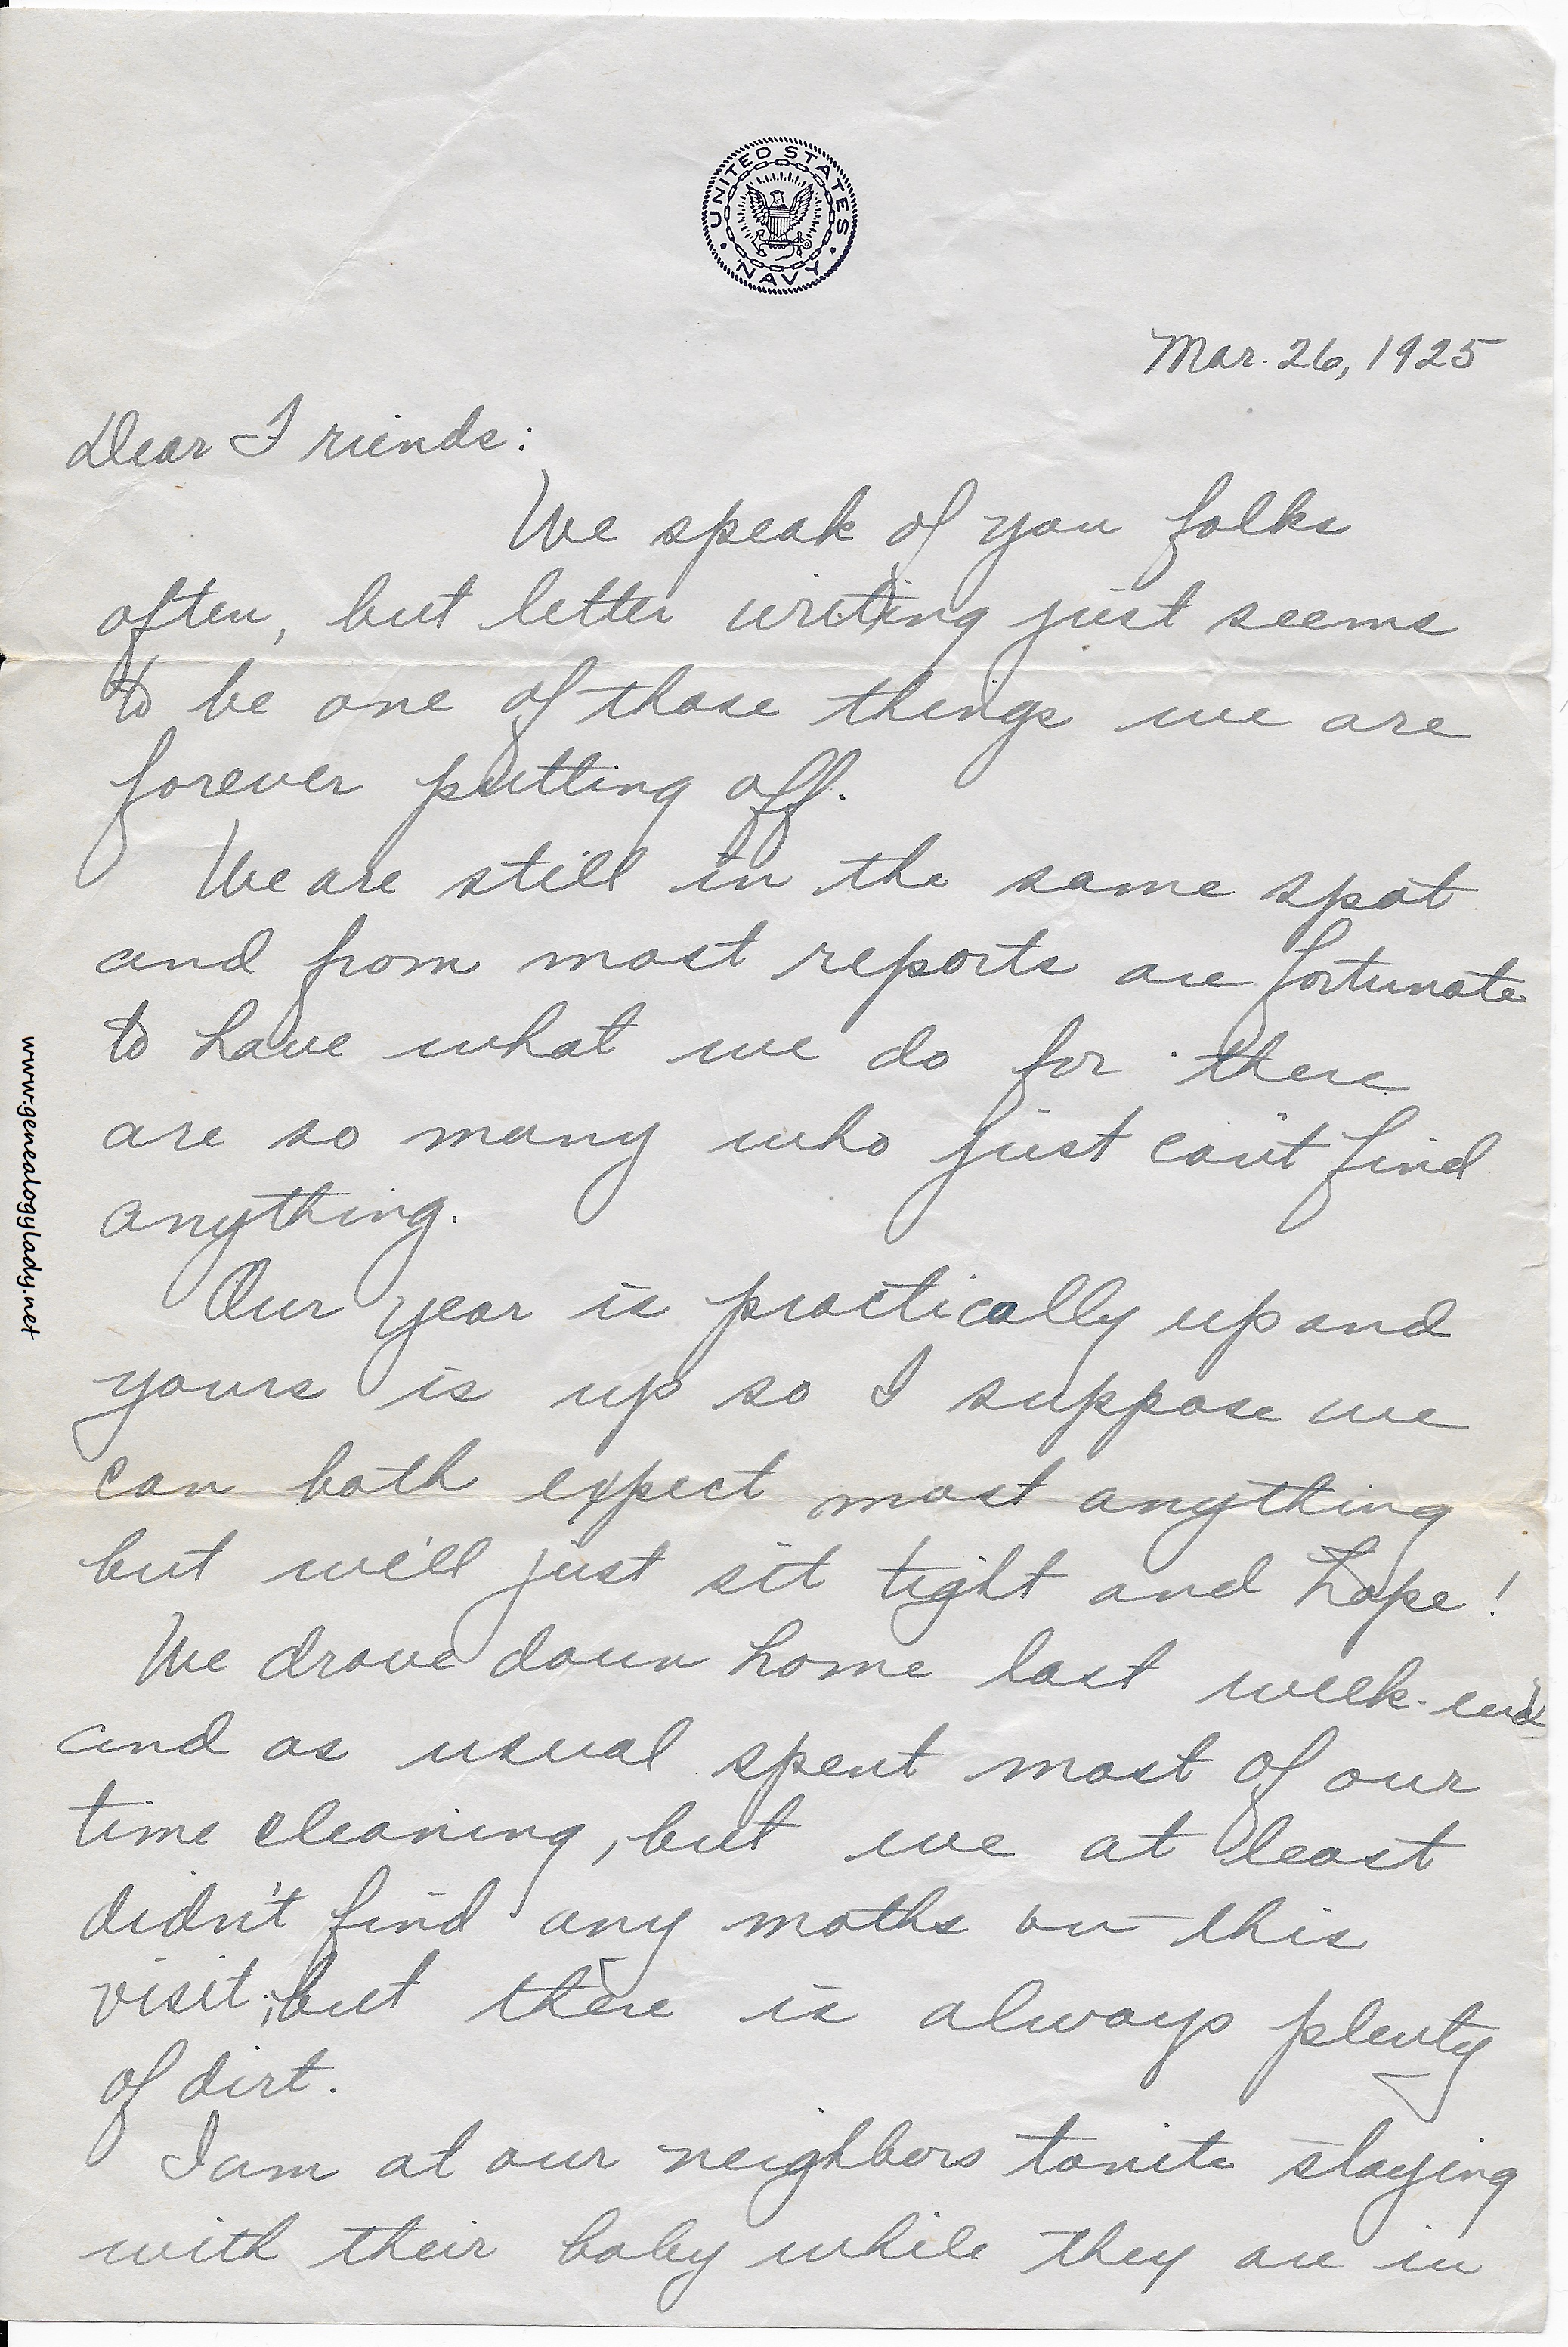 UNITED STATES NAVY
Mar. 26, 1925
Dear Friends:
We speak of you folks
often, but letter writing just seems
to be one of those things we are
forever putting off.
We are still in the same spot
and from most reports are fortunate
to have what we do for there
are so many who just can't find
anything.
Our year is practically up and
yours is up so I suppose we
can both expect most anything
but we'll just sit tight and hope!
We drove down home last week-end
and as usual spent most of our
time cleaning, but we at least
didn't find any moths on this
visit; but there is always plenty
of dirt.
I am at our neighbors tonite staying
with their baby while they are in
www.genealogylady.net